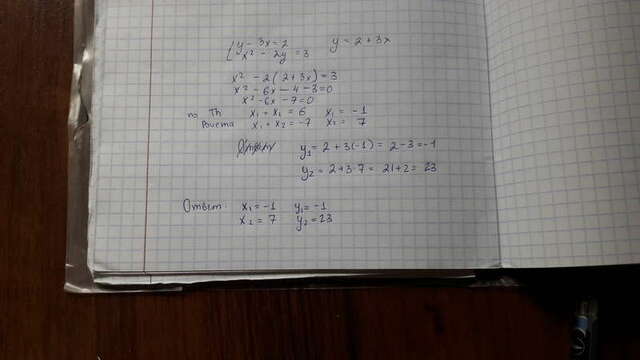 { y - 3x = 2    y = 2 + 3x
x² - 2y = 3
x² - 2(2+3x) = 3
x² - 6x - 4 - 3 = 0
x² - 6x - 7 = 0
по Th Виета x₁ + x₂ = 6    x₁ = -1
x₁ · x₂ = -7    x₂ = 7
y₁ = 2 + 3·(-1) = 2 - 3 = -1
y₂ = 2 + 3·7 = 21 + 2 = 23
Ответ: x₁ = -1    y₁ = -1
x₂ = 7    y₂ = 23